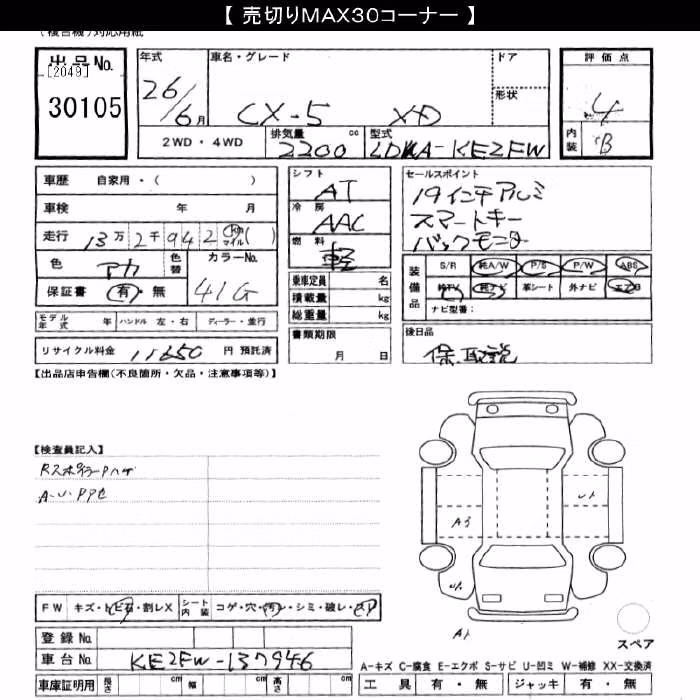 【 売切りMAX30コーナー 】
(複合機)対応用紙
出品No.
[2049]
30105
年式
26/6月
車名・グレード
CX-5 XD
ドア
形状
評価点
4
内装
B
2WD・4WD
排気量 cc
2200
型式
LDA-KE2FW
車歴 自家用・( )
車検 年 月
走行 13万2千942 km マイル ( )
色 アカ 色替 カラーNo. 41G
保証書 有・無
モデル年式 年 ハンドル 左・右 ディーラー・並行
リサイクル料金 11650 円 預託済
シフト
AT
冷房
AAC
燃料
軽
乗車定員 名
積載量 kg
総重量 kg
書類期限
月 日
セールスポイント
19インチアルミ
スマートキー
バックモニタ
装備品
S/R 純A/W P/S P/W ABS
純TV 純ナビ 革シート 外ナビ エアB
ナビ型番:
後日品
保、取説
【出品店申告欄(不良箇所・欠品・注意事項等)】
【検査員記入】
RスポイラーPハゲ
A・U・Pアセ
A3
U1
U1
A1
FW キズ・トビ石・割レX シート内装 コゲ・穴・汚レ・シミ・破レ・スレ
登録No.
車台No. KE2FW-137946
車庫証明用 長さ cm 幅 cm 高さ cm
スペア
A-キズ C-腐食 E-エクボ S-サビ U-凹ミ W-補修 XX-交換済
工具 有・無 ジャッキ 有・無